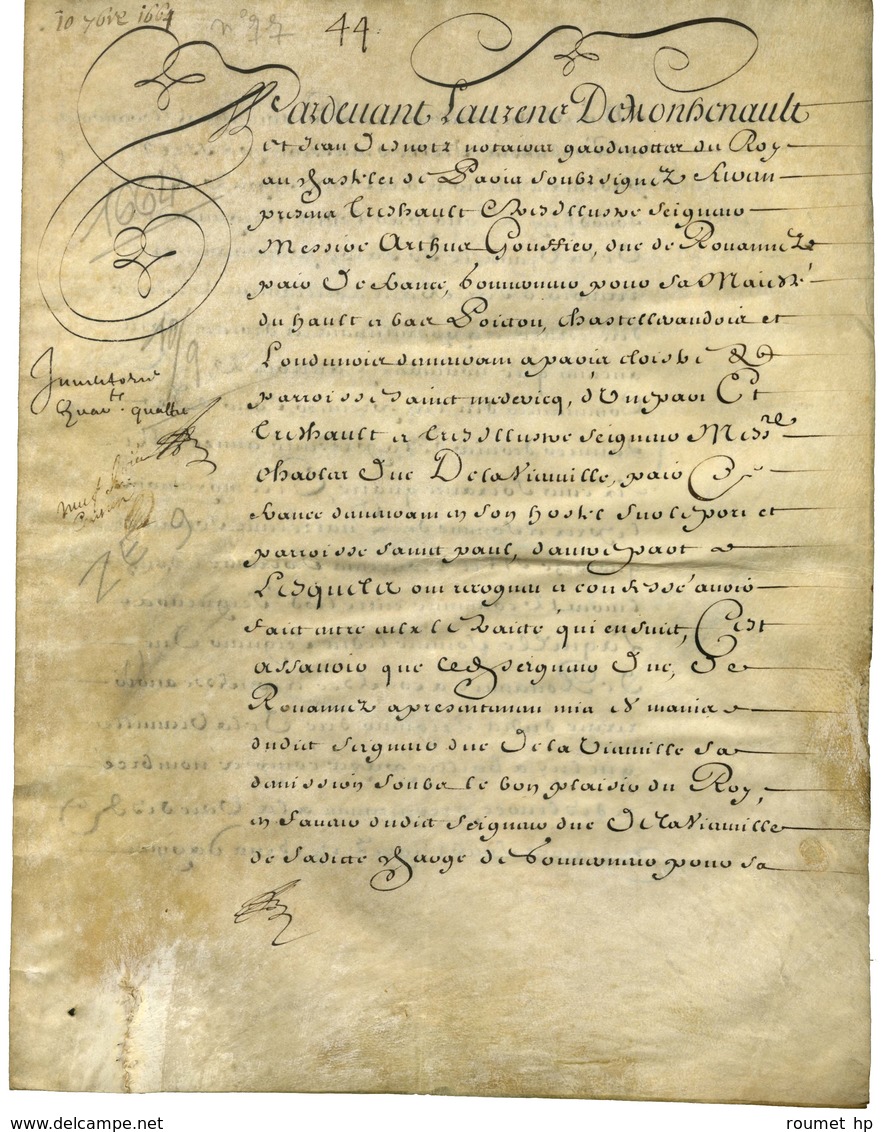 10 7bre 1664
n° 27
44
Pardevant Laurene Demonhenault
et Jean Desnotz notaires gardenottes du Roy
au Chastelet de Paris soubzsignez furent
presens treshault et tresIllustre seigneur
Messire Arthur Gouffier, duc de Rouannez
pair De france, Gouverneur pour sa Maiesté
du hault et bas Poictou, Chastelleraudois et
Loudunois demeurant a paris cloistre et
parroisse sainct medericq, d'Une part Et
treshault et tresIllustre seigneur Messre
Charles Duc De la Vieuville, pair De
france demeurant en son hostel sur le port et
parroisse sainct paul, d'autre part
Lesquels ont recognu et confessé avoir
faict entre eulx le traicté qui ensuit, C'est
assavoir que ledt seigneur Duc, De
Rouannez a presentement mis es mains
dudict seigneur duc De la Vieuville sa
demission soubz le bon plaisir du Roy,
en faveur dudict seigneur duc De la Vieuville
de sadicte charge de Gouverneur pour sa
1664
19/9
Inventorié
Quarte. quattre
ZE 9
www.delcampe.net
roumet hp